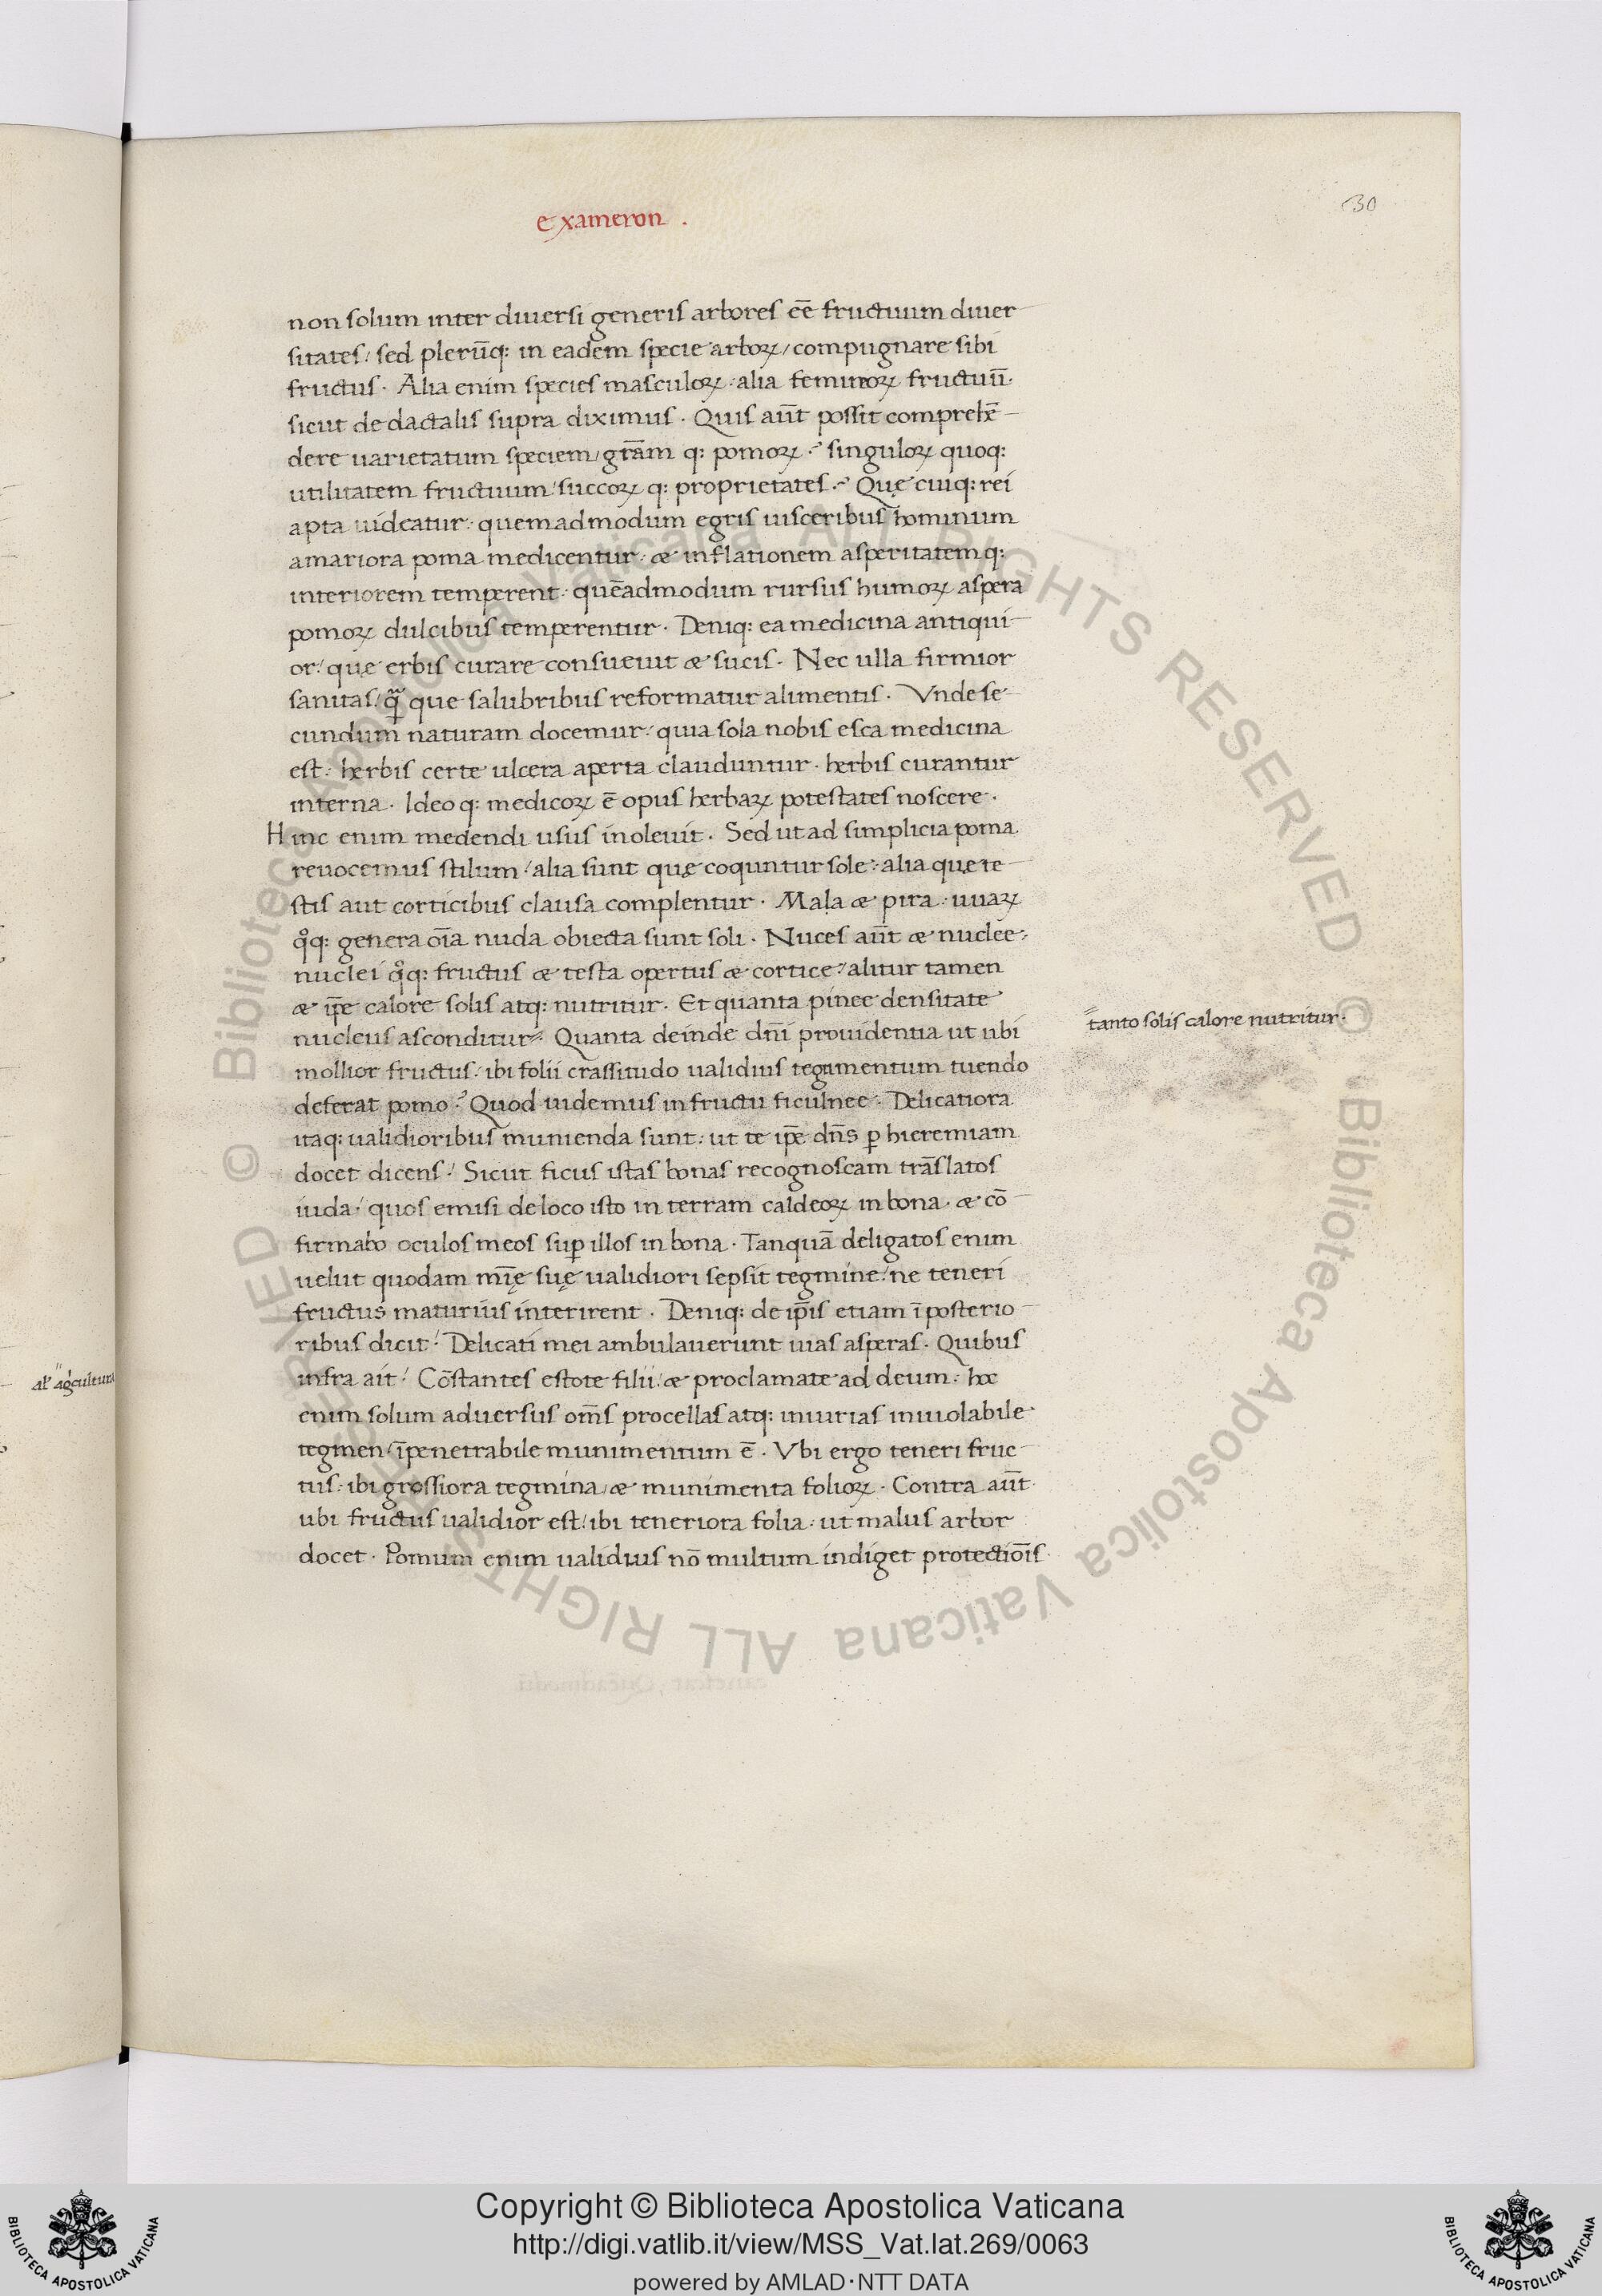 exameron .
30
non solum inter diuersi generis arbores eē fructuum diuer
sitates / sed plerūq: in eadem specie arboꝝ / compugnare sibi
fructus . Alia enim species masculoꝝ : alia feminoꝝ fructuū .
sicut de dactalis supra diximus . Quis aūt possit comprehē
dere uarietatum speciem / gr̄am q: pomoꝝ . singuloꝝ quoq:
utilitatem fructuum / succoꝝ q: proprietates . Quę cuiq: rei
apta uideatur . quemadmodum egris uisceribus hominum
amariora poma medicentur . æ inflationem asperitatem q:
interiorem temperent . quēadmodum rursus humoꝝ aspera
pomoꝝ dulcibus temperentur . Deniq: ea medicina antiqui
or / quæ erbis curare consueuit æ sucis . Nec ulla firmior
sanitas / q̄ꝫ que salubribus reformatur alimentis . Vnde se
cundum naturam docemur / quia sola nobis esca medicina
est : herbis certe ulcera aperta clauduntur . herbis curantur
interna . Ideo q: medicoꝝ ē opus herbaꝝ potestates noscere .
Hinc enim medendi usus inoleuit . Sed ut ad simplicia poma
reuocemus stilum / alia sunt quę coquntur sole : alia quę te
stis aut corticibus clausa complentur . Mala æ pira : uuaꝝ
qͦq: genera oīa nuda obiecta sunt soli . Nuces aūt æ nuclee :
nuclei qͦq: fructus æ testa opertus æ cortice / alitur tamen
æ ip̄e calore solis atq: nutritur . Et quanta pinee densitate
nucleus asconditur . Quanta deinde dn̄i prouidentia ut ubi
mollior fructus : ibi folii crassitudo ualidius tegumentum tuendo
deferat pomo ? Quod uidemus in fructu ficulnee . Delicatiora
itaq: ualidioribus munienda sunt : ut te ip̄e dn̄s ꝑ hieremiam
docet dicens / Sicut ficus istas bonas recognoscam trāslatos
iuda / quos emisi de loco isto in terram caldeoꝝ in bona . æ cō
firmabo oculos meos suꝑ illos in bona . Tanquā deligatos enim
uelut quodam mīę suę ualidiori sepsit tegmine / ne teneri
fructus maturius interirent . Deniq: de ip̄is etiam ī posterio
ribus dicit / Delicati mei ambulauerunt uias asperas . Quibus
infra ait / Cōstantes estote filii / æ proclamate ad deum : hoc
enim solum aduersus om̄s procellas atq: iniurias inuiolabile
tegmen / īpenetrabile munimentum ē . Vbi ergo teneri fruc
tus : ibi grossiora tegmina / æ munimenta folioꝝ . Contra aūt
ubi fructus ualidior est / ibi teneriora folia : ut malus arbor
docet . Pomum enim ualidius nō multum indiget protectiōis
tanto solis calore nutritur .
Copyright © Biblioteca Apostolica Vaticana
http://digi.vatlib.it/view/MSS_Vat.lat.269/0063
powered by AMLAD·NTT DATA
BIBLIOTECA APOSTOLICA VATICANA
BIBLIOTECA APOSTOLICA VATICANA
© Biblioteca Apostolica Vaticana ALL RIGHTS RESERVED
© Biblioteca Apostolica Vaticana ALL RIGHTS RESERVED